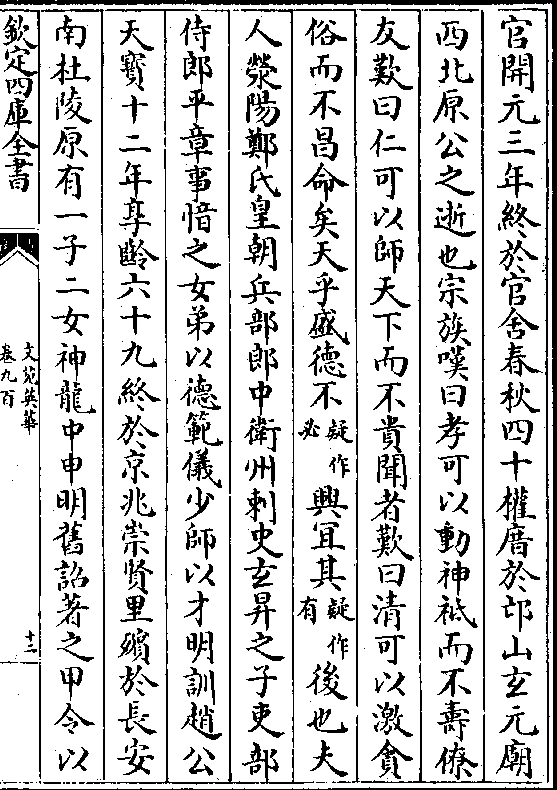 官開元三年終於官舍春秋四十權厝於邙山玄元廟
西北原公之逝也宗族嘆曰孝可以動神祗而不壽僚
友歎曰仁可以師天下而不貴聞者歎曰清可以激貪
俗而不昌命矣天乎盛德不疑作必興冝其疑作有後也夫
人滎陽鄭氏皇朝兵部郎中衛州刺史玄昇之子吏部
侍郎平章事愔之女弟以德範儀少師以才明訓趙公
天寶十二年享齡六十九終於京兆崇賢里殯於長安
南杜陵原有一子二女神龍中申明舊詔著之甲令以
欽定四庫全書
文苑英華
卷九百
十二